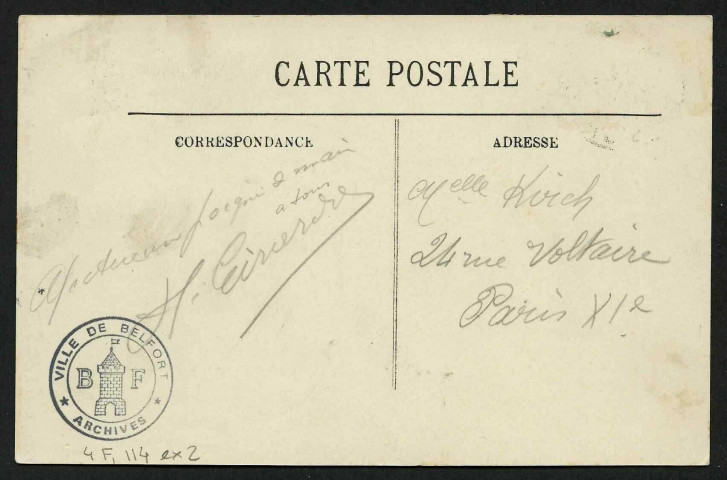 CARTE POSTALE
CORRESPONDANCE
ADRESSE
2 main
a tous
H.
Melle Kirch
24 rue Voltaire
Paris XIe
VILLE DE BELFORT
B F
ARCHIVES
4 F, 114 ex 2